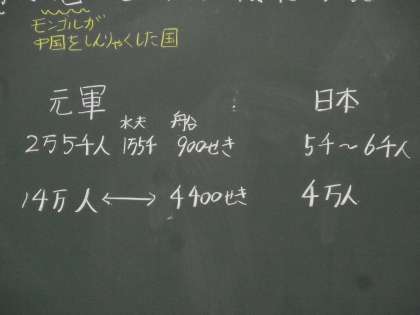 モンゴルが
中国をしんりゃくした国
元軍 : 日本
水夫 船
2万5千人 1万5千 900せき 5千〜6千人
14万人 ⟷ 4400せき 4万人